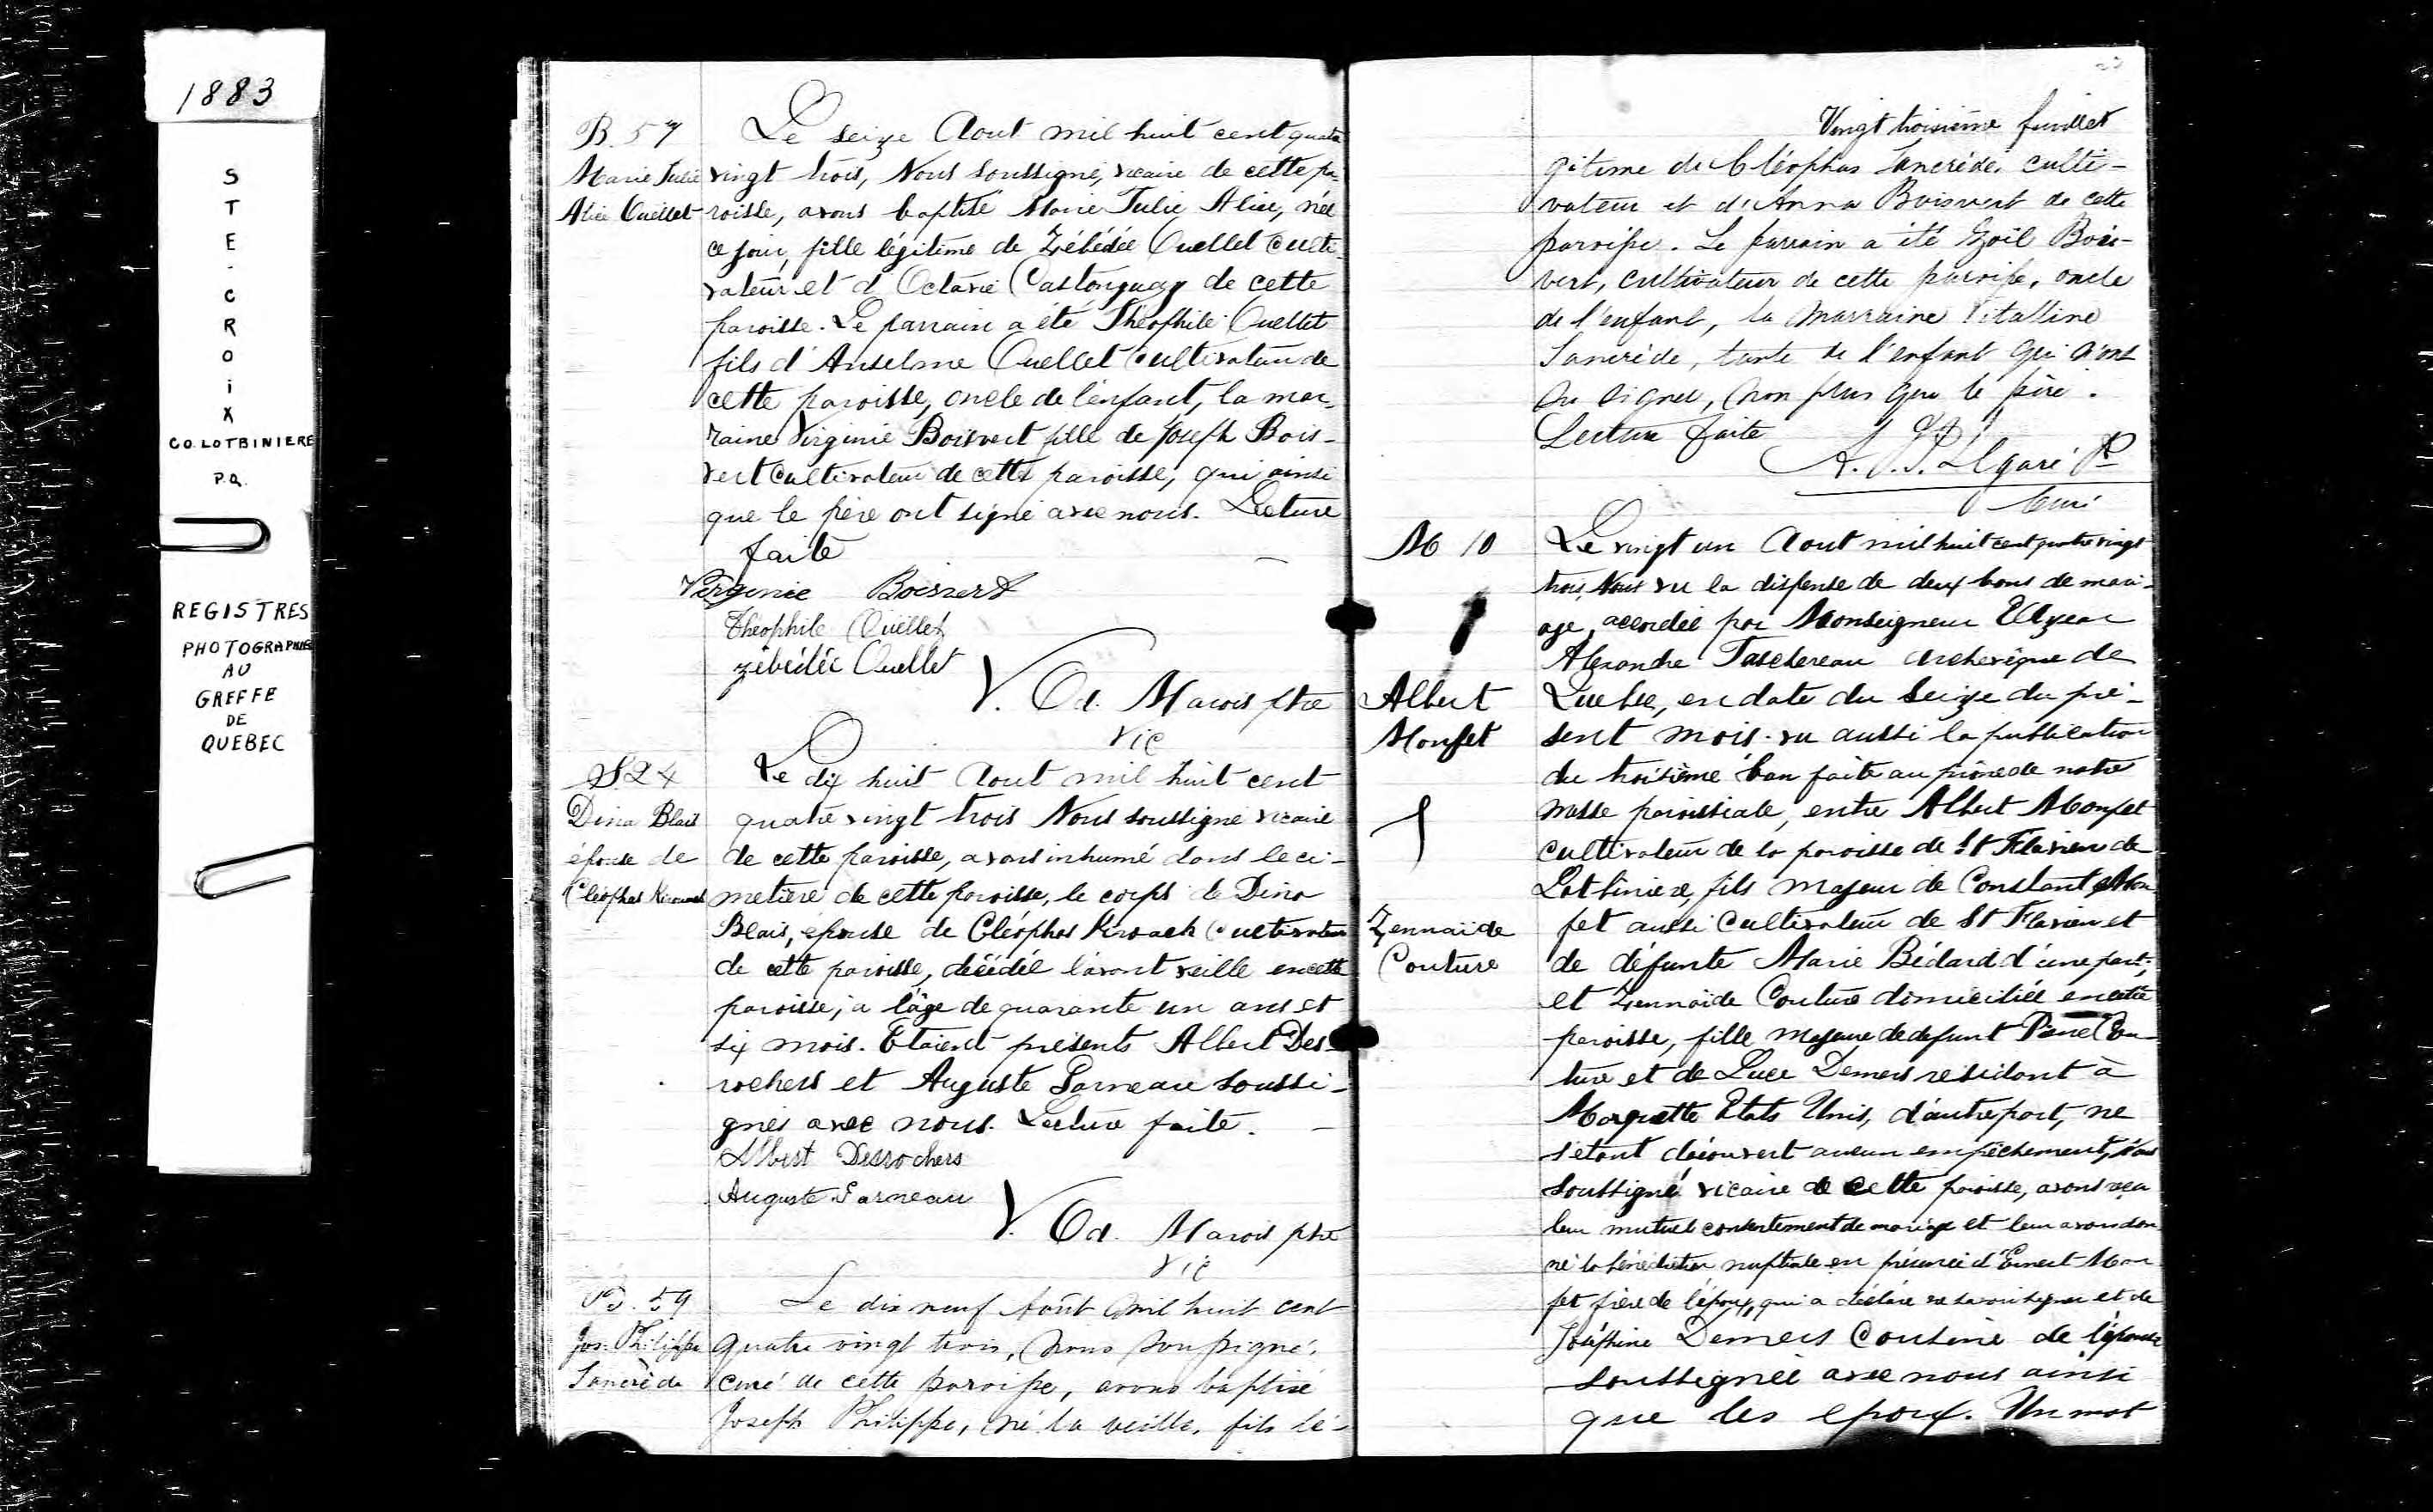 1883
STE-CROIX
CO. LOTBINIERE
P.Q.
REGISTRES
PHOTOGRAPHIÉS
AU
GREFFE
DE
QUEBEC
B. 57
Marie Julie
Alice Ouellet
Le seize Aout mil huit cent quatre
vingt trois, Nous soussigné, vicaire de cette pa-
roisse, avons baptisé Marie Julie Alice, née
ce jour, fille légitime de Zébédée Ouellet culti-
vateur et d'Octavie Castonguay de cette
paroisse. Le parrain a été Théophile Ouellet
fils d'Anselme Ouellet cultivateur de
cette paroisse, oncle de l'enfant, la mar-
raine Virginie Boisvert fille de Joseph Bois-
vert cultivateur de cette paroisse, qui ainsi
que le père ont signé avec nous. Lecture
faite
Virginie Boisvert
Théophile Ouëllet
zébédée Ouellet
V. Od. Marois ptre
Vic
S. 24
Dina Blais
épouse de
Cléophas
Le dix huit Aout mil huit cent
quatre vingt trois Nous soussigné vicaire
de cette paroisse, avons inhumé dans le ci-
metière de cette paroisse, le corps de Dina
Blais, épouse de Cléophas Kirouack cultivateur
de cette paroisse, décédée l'avant veille en cette
paroisse, a l'âge de quarante un ans et
six mois. Etaient présents Albert Des-
rochers et Auguste Garneau soussi-
gnés avec nous. Lecture faite.
Albert Desrochers
Auguste Garneau
V. Od. Marois ptre
Vic
B. 59
Jos. Philippe
Tancrède
Le dix neuf Août mil huit cent
quatre vingt trois, nous soussigné,
curé de cette paroisse, avons baptisé
Joseph Philippe, né la veille, fils lé-
Vingt troisième feuillet
gitime de Cléophas Tancrède, culti-
vateur et d'Anna Boisvert de cette
paroisse. Le parrain a été Zoïl Bois-
vert, cultivateur de cette paroisse, oncle
de l'enfant, la marraine Vitaline
Tancrède, tante de l'enfant qui n'ont
su signer, non plus que le père.
Lecture faite
Légaré Ptre
Curé
M 10
Albert
Monfet
Zennaïde
Couture
Le vingt un Aout mil huit cent quatre vingt
trois, Nous vu la dispense de deux bans de mari-
age, accordée par Monseigneur Elzear
Alexandre Taschereau archevêque de
Quebec, en date du seize du pré-
sent mois. vu aussi la publication
du troisième ban faite au prône de notre
messe paroissiale, entre Albert Monfet
cultivateur de la paroisse de St Flavien de
Lotbiniere, fils majeur de Constant Mon
fet aussi cultivateur de St Flavien et
de défunte Marie Bédard d'une part,
et Zennaïde Couture domiciliée en cette
paroisse, fille majeure de defunt Pierre Cou-
ture et de Luce Demers residant à
Marquette Etats Unis, d'autre part, ne
s'étant découvert aucun empêchement, Nous
soussigné vicaire de cette paroisse, avons reçu
leur mutuel consentement de mariage et leur avons don
né la bénédiction nuptiale en présence d'Ernest Mon
fet frère de l'époux, qui a déclaré ne savoir signer et de
Joséphine Demers cousine de l'épouse
soussignée avec nous ainsi
que les epoux. Un mot